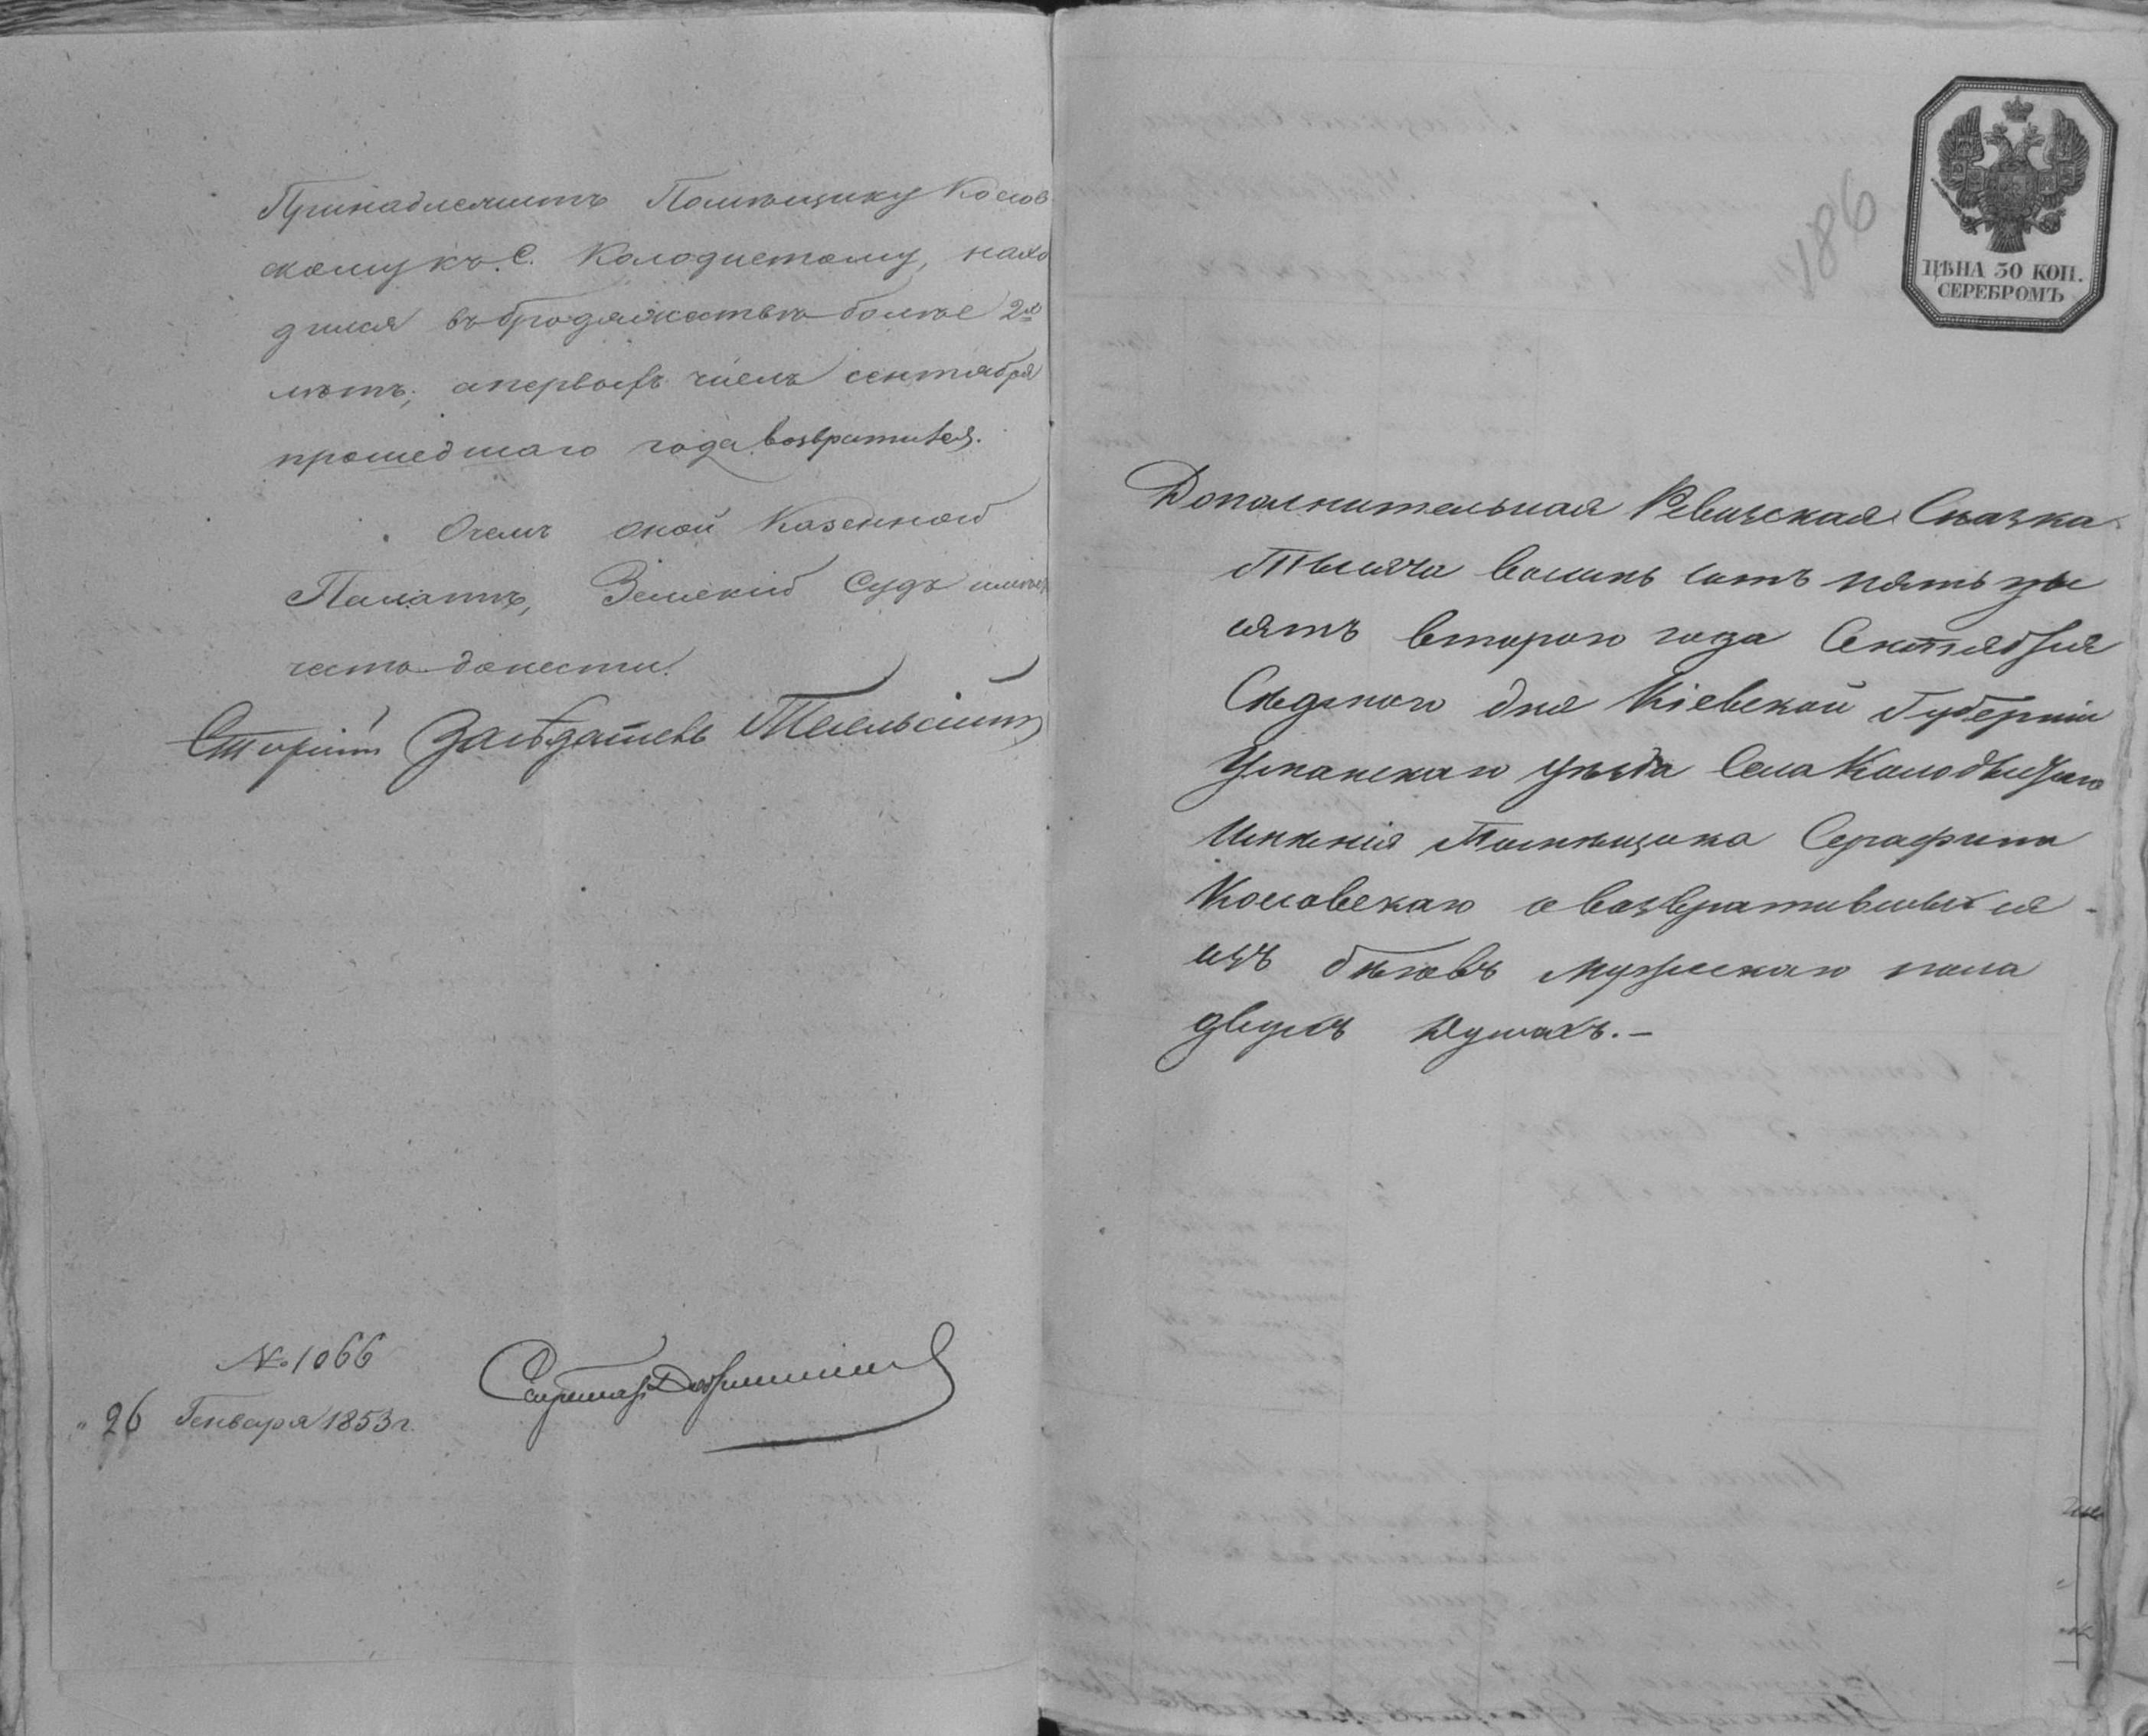 Принадлежитъ Помѣщику Косов
скому къ С. Колодистому, нахо
дился въ бродяжествѣ болѣе 2хъ
лѣтъ; а первыхъ числъ сентября
прошедшаго года возвратился.
О чемъ оной Казенной
Палатѣ, Земскій Судъ имѣетъ
честь донести.
Засѣдатель
№ 1066
26 Генваря 1853 г.
186
ЦѢНА 30 КОП.
СЕРЕБРОМЪ
Дополнительная Ревизская Сказка
Тысяча восимь сотъ пятьдѣ
сятъ второго года Сентября
Сѣдмого дня Кіевской Губерніи
Уманскаго уѣзда Села Колодыстого
Имѣнія Помѣщика Серафина
Косовскаго о возвратившыхся
изъ бѣговъ мужескаго пола
двухъ душахъ.—